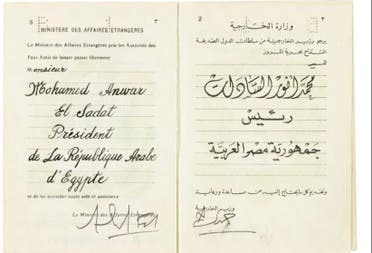 8
٣
MINISTERE DES AFFAIRES ETRANGERES
Le Ministre des Affaires Etrangères prie les Autorités des
Pays Amis de laisser passer librement
Monsieur
Mohamed Anwar
El Sadat
Président
de La République Arabe
d'Egypte
et de lui accorder toute aide et assistance
Le Ministre des Affaires Etrangères
2
٢
وزارة الخارجية
يرجو وزير الخارجية من سلطات الدول الصديقة
السماح بحرية المرور
السيد
محمد أنور السادات
رئيس
جمهورية مصر العربية
وتقديم كل ما يحتاج إليه من مساعدة ورعاية
وزير الخارجية